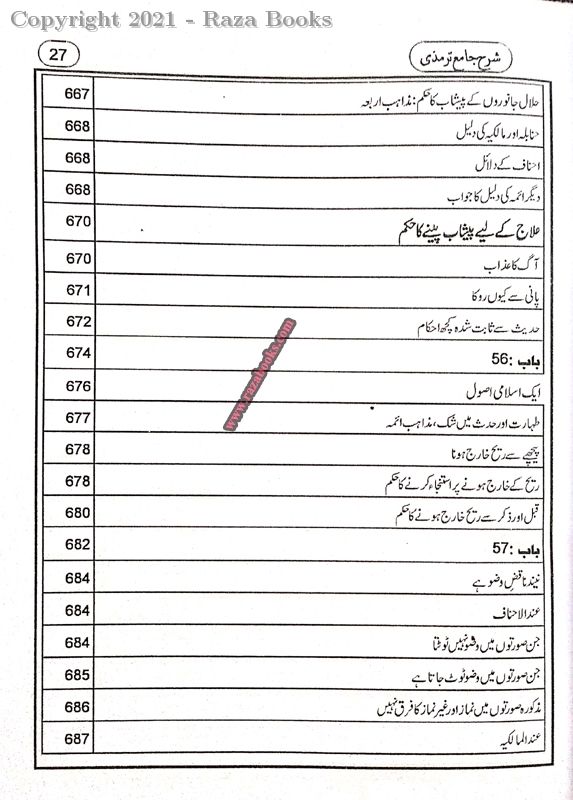 Copyright 2021 - Raza Books
27
شرح جامع ترمذی
حلال جانوروں کے پیشاب کا حکم: مذاہب اربعہ 667
حنابلہ اور مالکیہ کی دلیل 668
احناف کے دلائل 668
دیگر ائمہ کی دلیل کا جواب 668
علاج کے لیے پیشاب پینے کا حکم 670
آگ کا عذاب 670
پانی سے کیوں روکا 671
حدیث سے ثابت شدہ کچھ احکام 672
باب :56 674
ایک اسلامی اصول 676
طہارت اور حدث میں شک، مذاہب ائمہ 677
پیچھے سے ریح خارج ہونا 678
ریح کے خارج ہونے پر استنجاء کرنے کا حکم 678
قبل اور ذکر سے ریح خارج ہونے کا حکم 680
باب :57 682
نیند ناقض وضو ہے 684
عند الاحناف 684
جن صورتوں میں وضو نہیں ٹوٹتا 684
جن صورتوں میں وضو ٹوٹ جاتا ہے 685
مذکورہ صورتوں میں نماز اور غیر نماز کا فرق نہیں 686
عند المالکیہ 687
www.razabooks.com